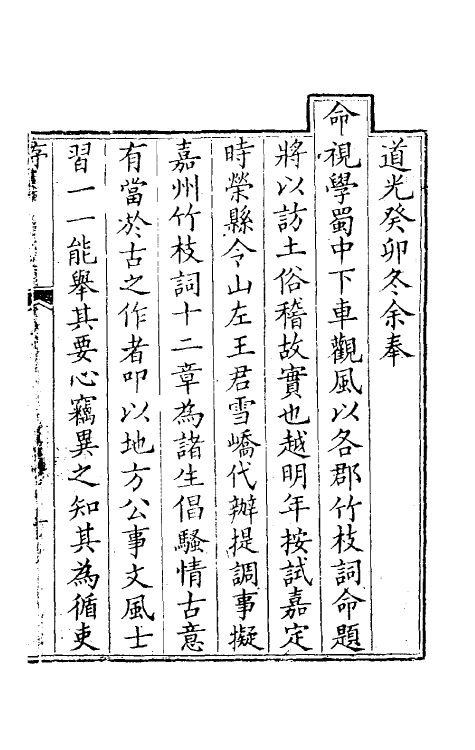 道光癸卯冬余奉
命視學蜀中下車觀風以各郡竹枝詞命題
將以訪土俗稽故實也越明年按試嘉定
時榮縣令山左王君雪嶠代辦提調事擬
嘉州竹枝詞十二章為諸生倡騷情古意
有當於古之作者叩以地方公事文風士
習一一能舉其要心竊異之知其為循吏
序